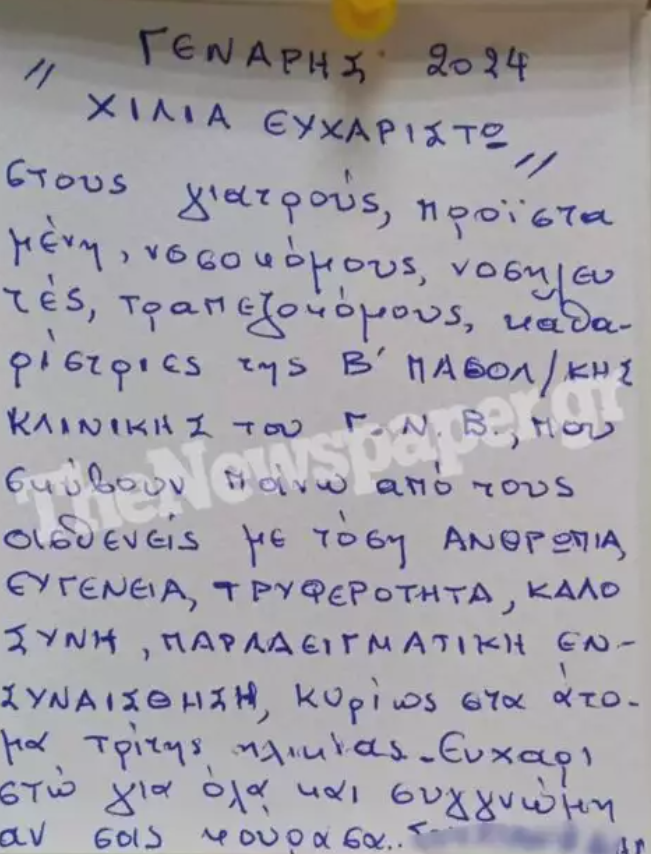 ΓΕΝΑΡΗΣ 2024
" ΧΙΛΙΑ ΕΥΧΑΡΙΣΤΩ "
στους γιατρούς, προϊστα
μένη, νοσοκόμους, νοσηλευ
τές, τραπεζοκόμους, καθα-
ρίστριες της Β' ΠΑΘΟΛ/ΚΗΣ
ΚΛΙΝΙΚΗΣ του Γ.Ν.Β., που
σκύβουν πάνω από τους
ασθενείς με τόση ΑΝΘΡΩΠΙΑ,
ΕΥΓΕΝΕΙΑ, ΤΡΥΦΕΡΟΤΗΤΑ, ΚΑΛΟ
ΣΥΝΗ, ΠΑΡΑΔΕΙΓΜΑΤΙΚΗ ΕΝ-
ΣΥΝΑΙΣΘΗΣΗ, κυρίως στα άτο-
μα τρίτης ηλικίας. Ευχαρι
στώ για όλα και συγγνώμη
αν σας κούρασα..
TheNewspaper.gr